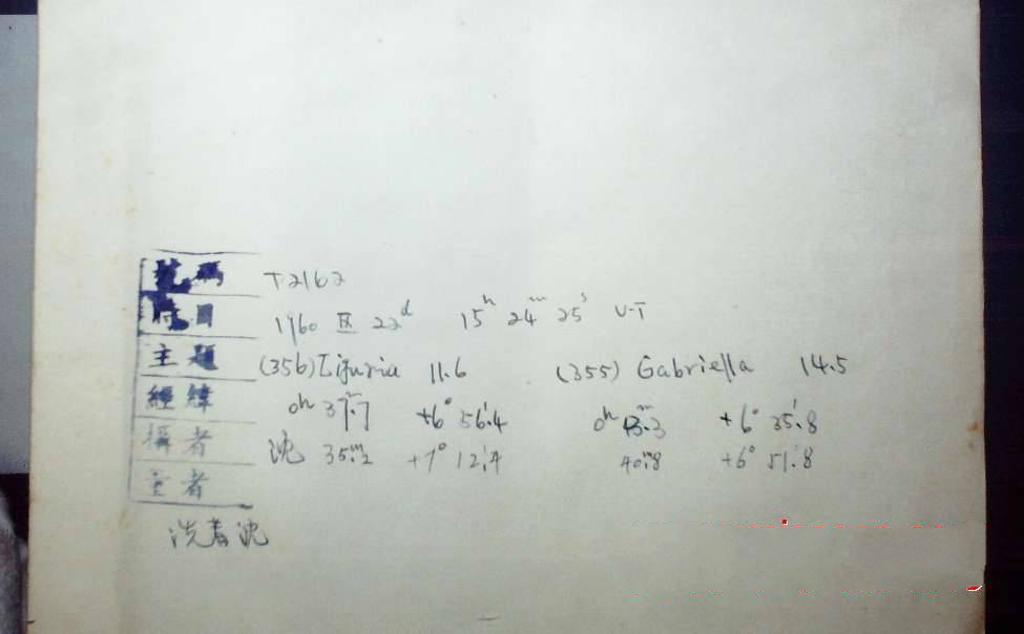 號碼 T2162
時日 1960 22ᵈ 15ʰ 24ᵐ 25ˢ U.T
主題 (356) Liguria 11.6 (355) Gabriella 14.5
經緯 0ʰ 37ᵐ.7 +6° 56′.4 0ʰ 43ᵐ.3 +6° 35′.8
攝者 沈 35ᵐ.2 +7° 12′.4 40ᵐ.8 +6° 51′.8
者
洗者沈